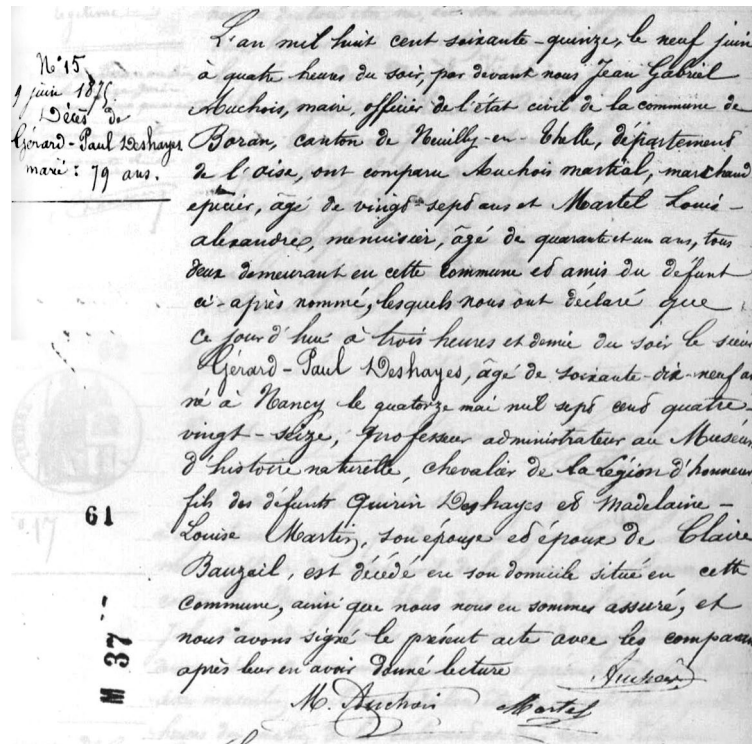 N° 15
9 juin 1875
Décès de
Gérard-Paul Deshayes
marié: 79 ans.
L'an mil huit cent soixante-quinze, le neuf juin
à quatre heures du soir, par devant nous Jean Gabriel
Auchois, maire, officier de l'état civil de la commune de
Boran, canton de Neuilly-en-Thelle, département
de l'Oise, ont comparu Auchois martial, marchand
épicier, âgé de vingt-sept ans et Martel Louis-
alexandre, menuisier, âgé de quarante et un ans, tous
deux demeurant en cette commune et amis du défunt
ci-après nommé, lesquels nous ont déclaré que
ce jourd'hui à trois heures et demie du soir le sieur
Gérard-Paul Deshayes, âgé de soixante-dix-neuf an
né à Nancy le quatorze mai mil sept cent quatre-
vingt-seize, Professeur administrateur au Muséum
d'histoire naturelle, chevalier de la légion d'honneur
fils des défunts Quirin Deshayes et Madelaine-
Louise Martin, son épouse et époux de Claire
Bauzeil, est décédé en son domicile situé en cette
commune, ainsi que nous nous en sommes assuré, et
nous avons signé le présent acte avec les comparan
après leur en avoir donné lecture
Auchois
M. Auchois Martel
61
M 37